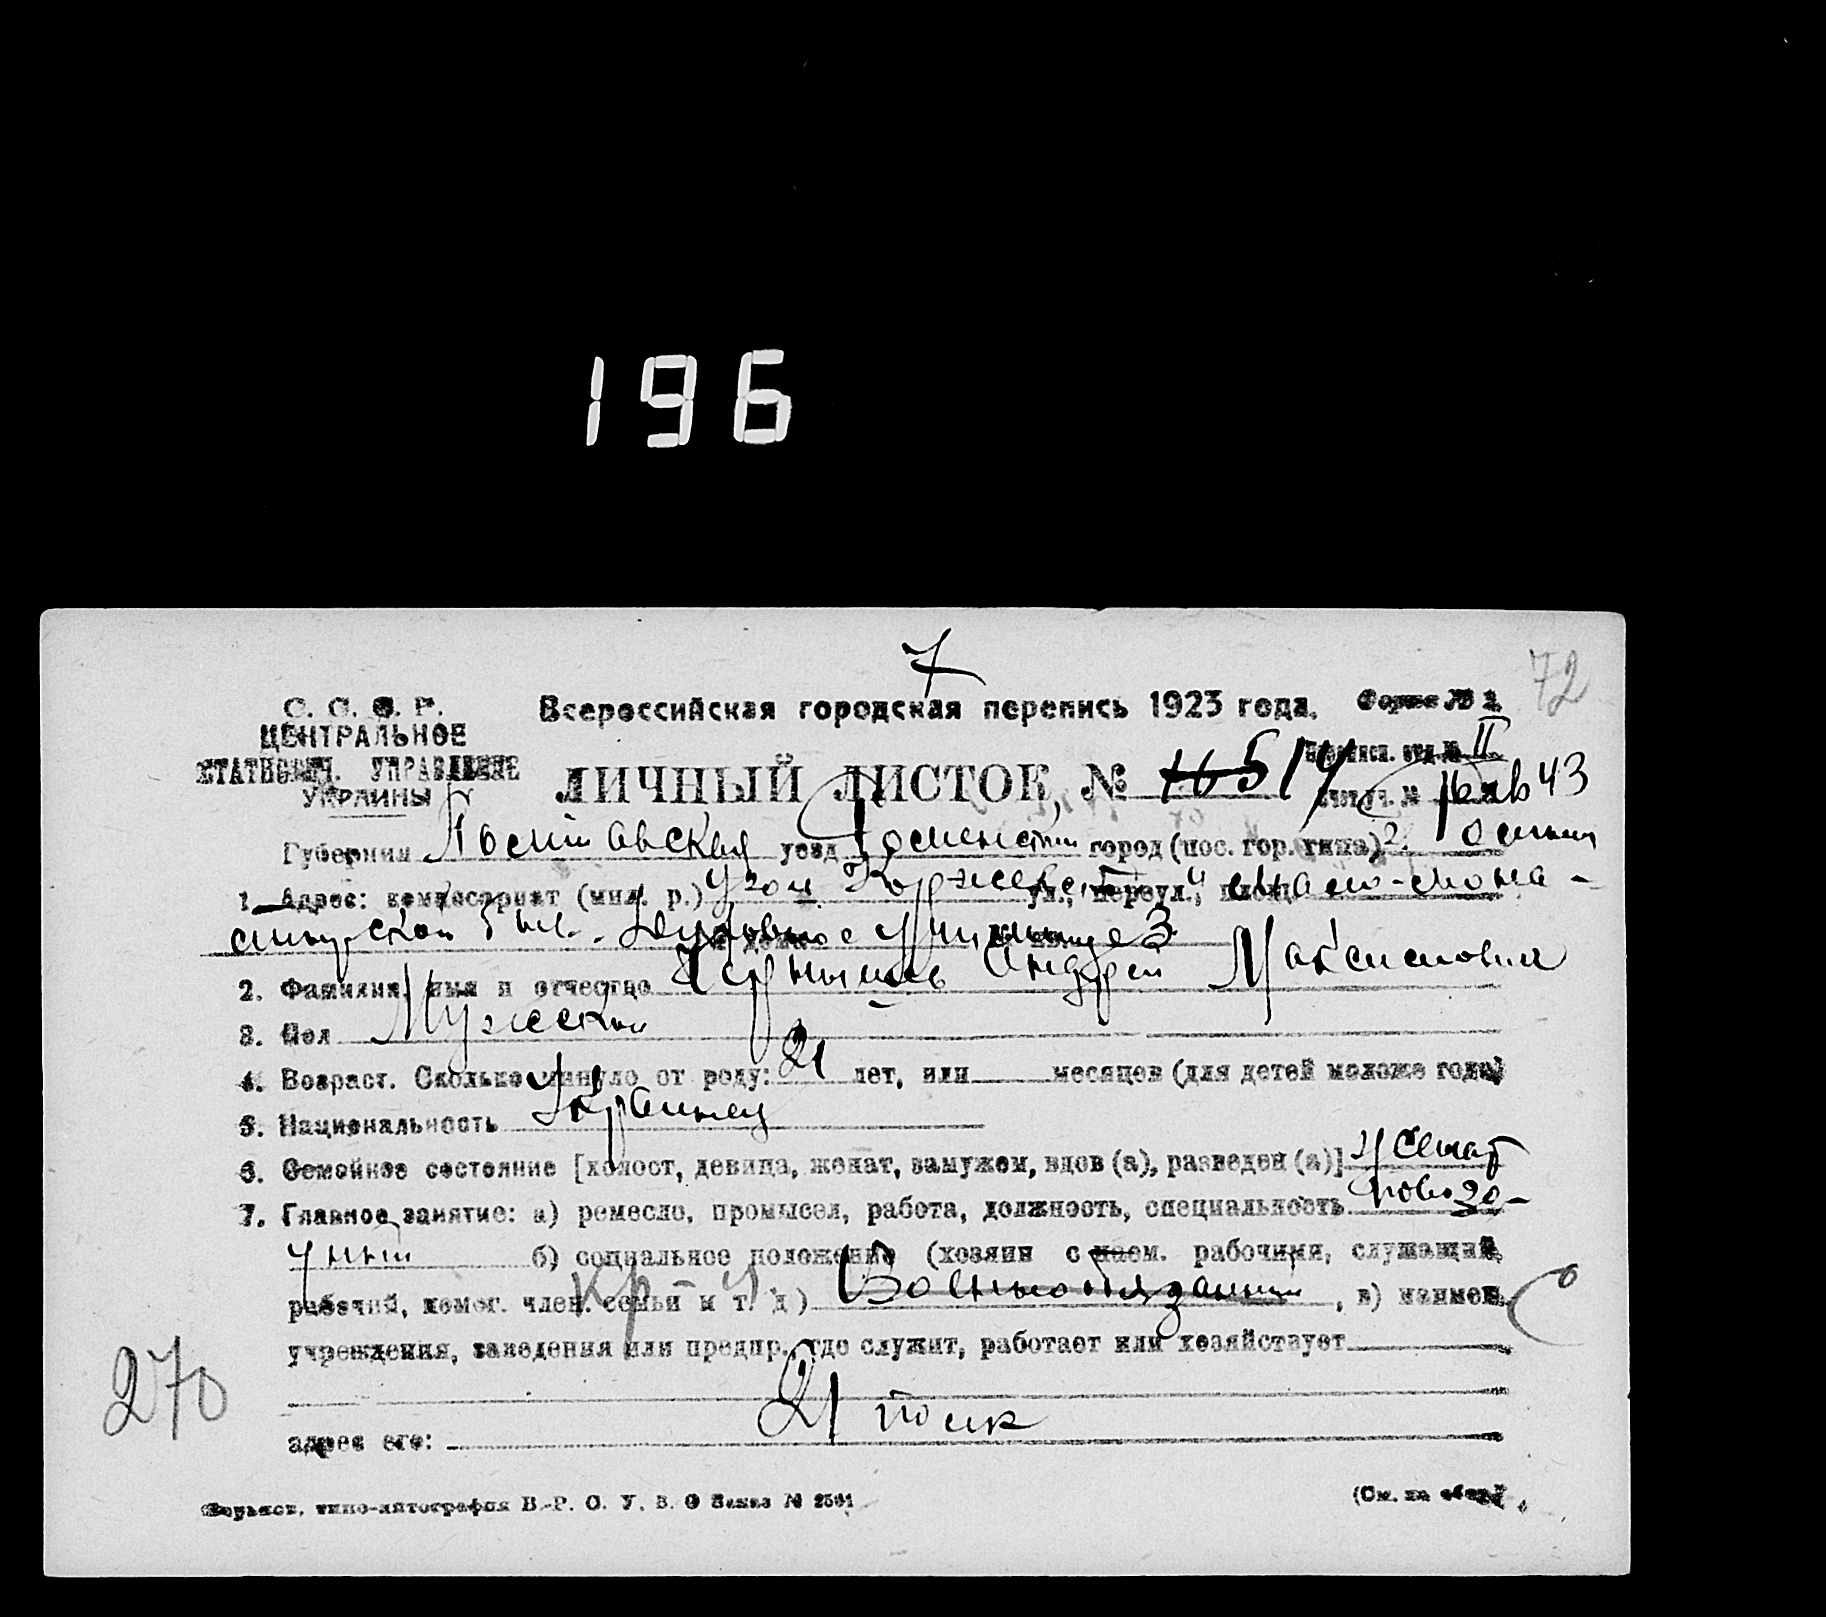 196
7
72
С. С. С. Р.
Всероссийская городская перепись 1923 года. Форма № 2
ЦЕНТРАЛЬНОЕ
СТАТИСТИЧ. УПРАВЛЕНИЕ
УКРАИНЫ
Переписн. отд. № II
ЛИЧНЫЙ ЛИСТОК, № 514
уч. № 43
Губерния Полтавская уезд Роменский город (пос. гор. типа) г. Ромны
1. Адрес: комиссариат (мил. р.) угол ул., переул., площ.
Духовное Училище 3
2. Фамилия, имя и отчество Андрей Максимович
3. Пол Мужской
4. Возраст. Сколько минуло от роду: 21 лет, или месяцев (для детей моложе года)
5. Национальность Украинец
6. Семейное состояние [холост, девица, женат, замужем, вдов (а), разведен (а)] Женат
7. Главное занятие: а) ремесло, промысел, работа, должность, специальность повозо-
чный б) социальное положение (хозяин с наем. рабочими, служащий,
рабочий, помог. член. семьи и т. д) Военнообязанный, в) наимен.
учреждения, заведения или предпр., где служит, работает или хозяйствует
270
21 полк
адрес его:
Харьков, типо-литография В.-Р. С. У. В. О Заказ № 2501
(См. на обор.)